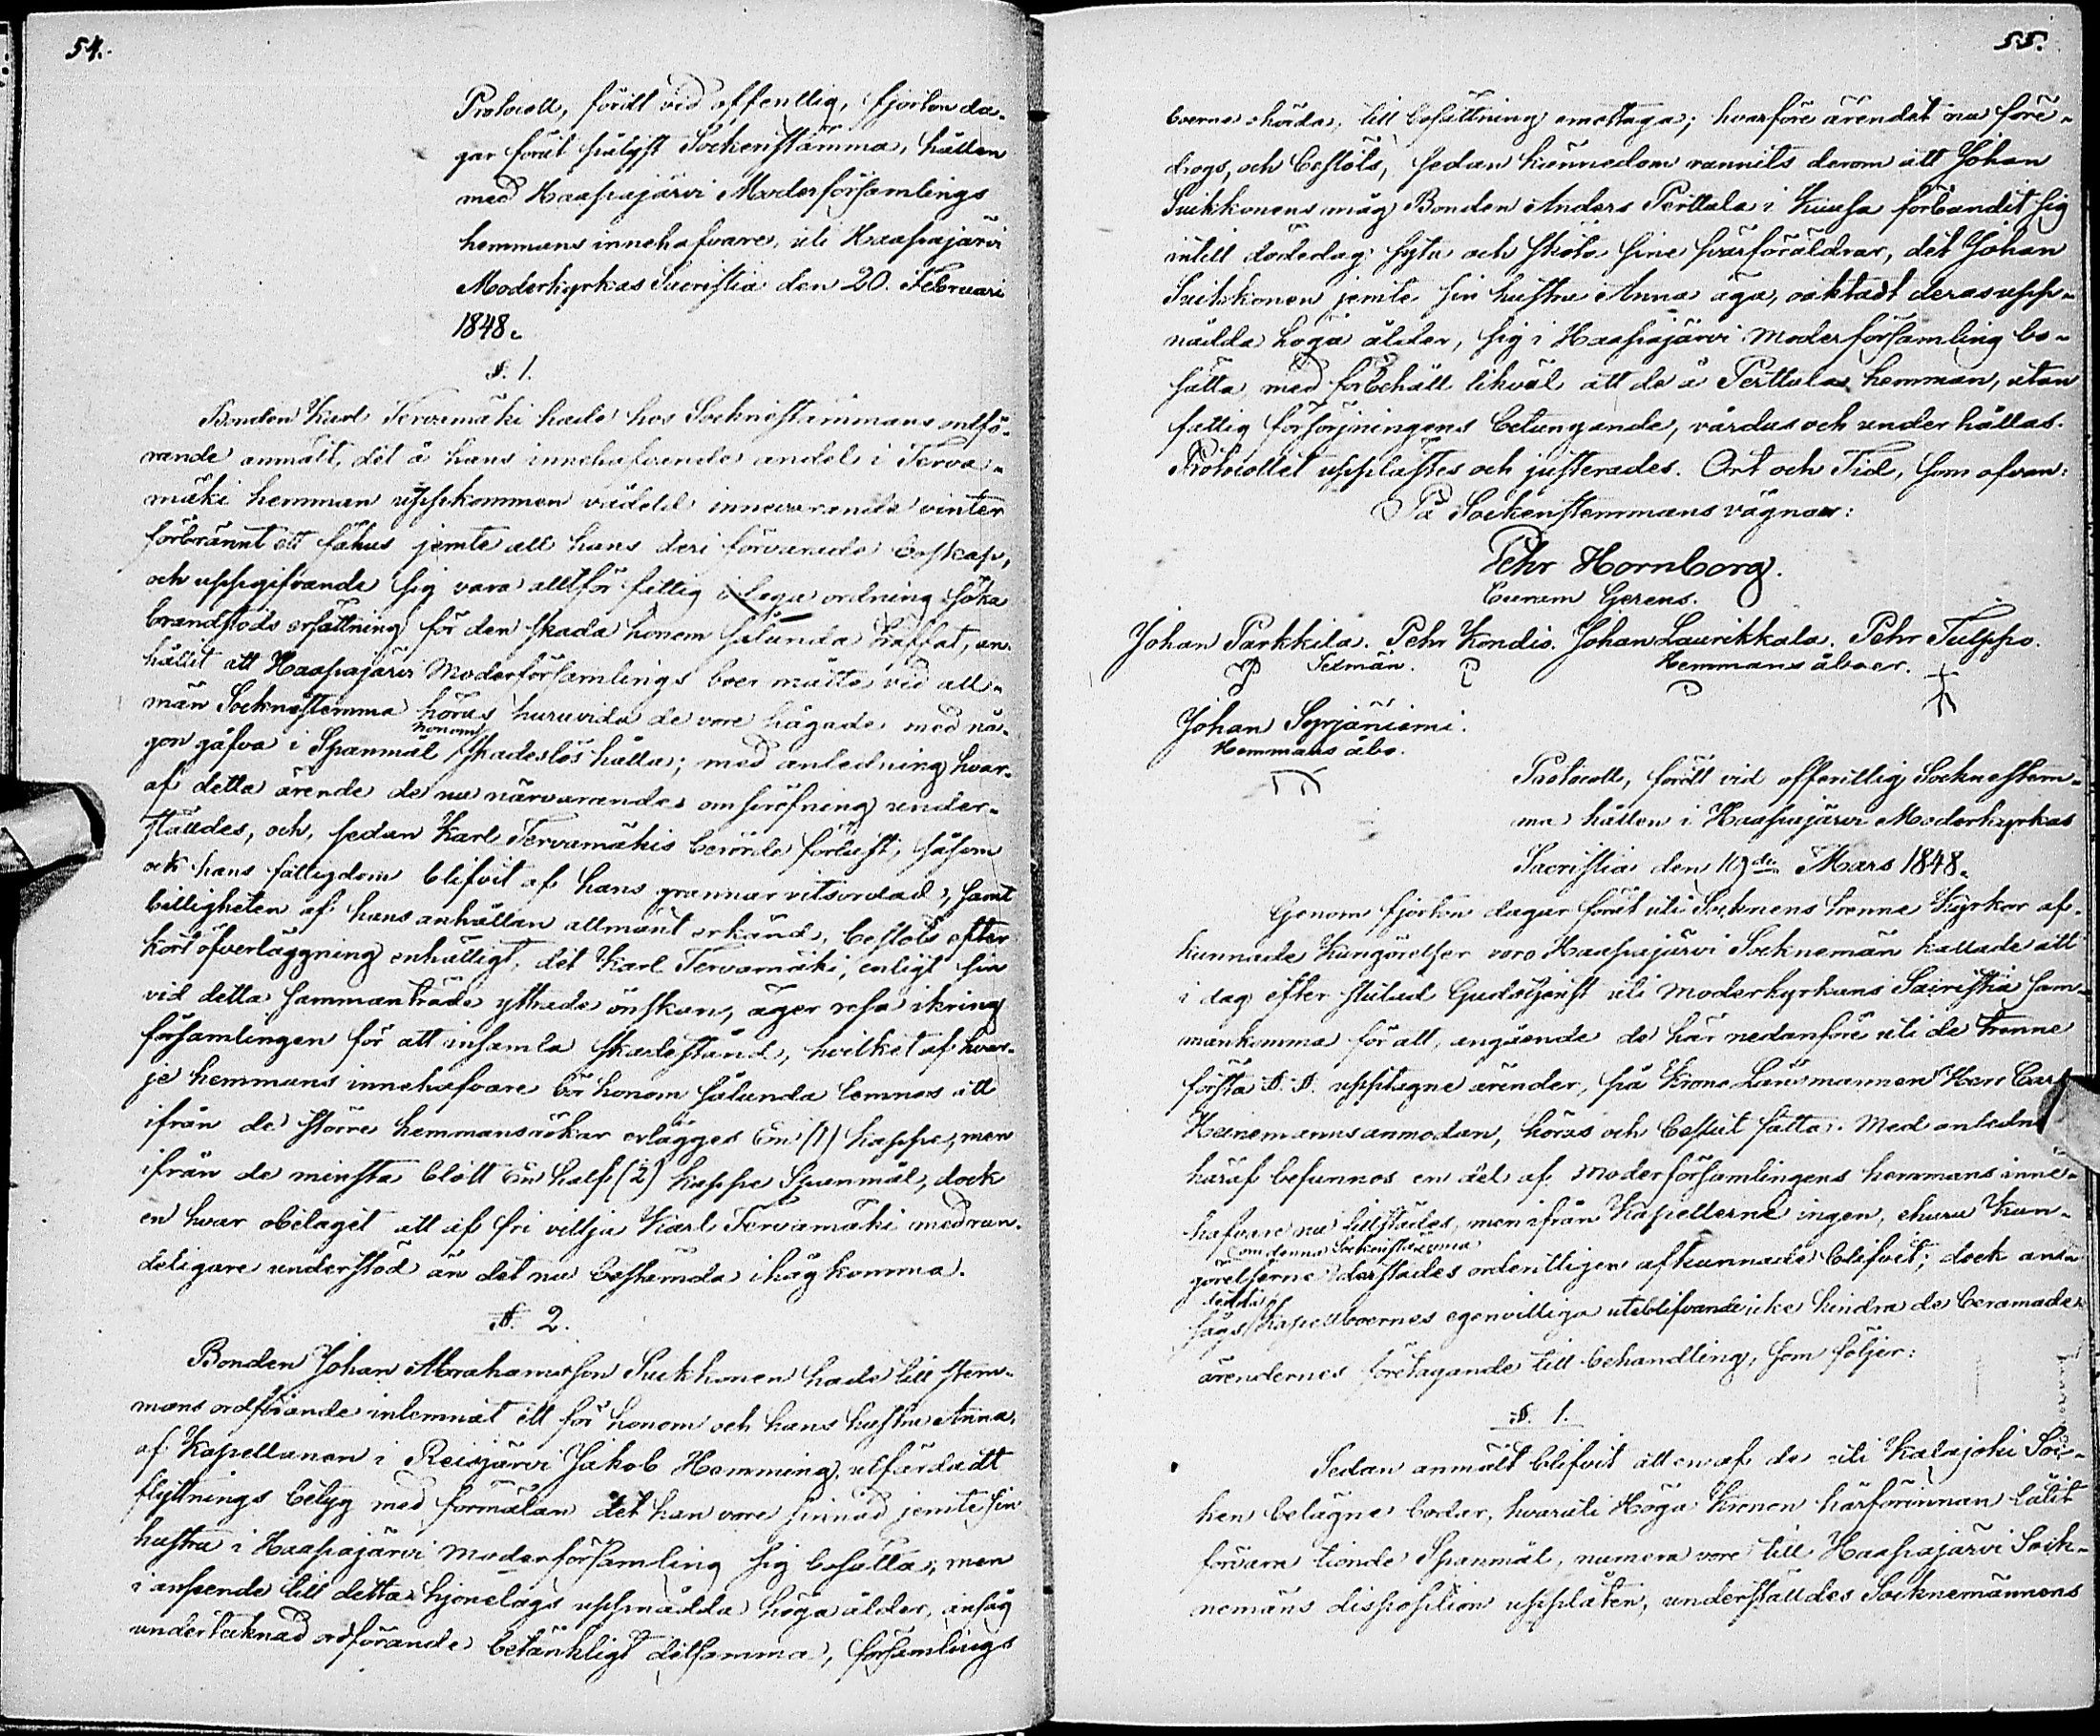 54.
Protocoll, fördt vid offentlig, fjorton da-
gar förut pålyst Sockenstämma, hållen
med Haapajärvi Moderförsamlings
hemmans innehafvare, uti Haapajärvi
Moderkyrkas Sacristia den 20. Februari
1848.
§. 1.
Bonden Karl Tervamäki hade hos Socknestämmans ordfö-
rande anmält, det å hans innehafvande andel i Terva-
mäki hemman uppkommen vådeld innevarande vinter
förbrännt ett fähus jemte all hans deri förvarade boskap,
och uppgifvande sig vara alltför fattig i laga ordning söka
brandstods ersättning för den skada honom sålunda träffat, an-
hållit att Haapajärvi Moderförsamlings boer måtte vid all-
män Socknestemma höras huruvida de vore hågade med nå-
honom
gon gåfva i Spanmål skadeslös hålla; med anledning hvar-
af detta ärende de nu närvarandes ompröfning under-
ställdes, och, sedan Karl Tervamäkis berörde förlust, såsom
ock hans fattigdom blifvit af hans grannar vitsordad, samt
billigheten af hans anhållan allmänt erkänd, beslöts efter
kort öfverläggning enhälligt, det Karl Tervamäki, enligt sin
vid detta sammanträde yttrade önskan, äger resa ikring
församlingen för att insamla skadestånd, hvilket af hvar-
je hemmans innehafvare bör honom sålunda lemnas att
ifrån de större hemmansrökar erlägges En (1) kappe, men
ifrån de minsta blott En half (½) kappe Spanmål, dock
en hvar obetaget att af fri vilja Karl Tervamäki med ran-
deligare understöd än det nu bestämda ihågkomma.
§. 2.
Bonden Johan Abrahamsson Suikkonen hade till stem-
mans ordförande inlemnat ett för honom och hans hustru Anna,
af Kapellanen i Reisjärvi Jakob Hemming, utfärdadt
flyttnings betyg med förmälan det han vore sinnad jemte sin
hustru i Haapajärvi moderförsamling sig bosätta; men
i anseende till detta hjonelags uppnådda höga ålder, ansåg
undertecknad ordförande betänkligt detsamma, församlings
55.
boerne ohörda, till bosättning emottaga; hvarföre ärendet nu före-
drogs, och beslöts, sedan kännedom vunnits derom att Johan
Suikkonens måg Bonden Anders Perttula i Kuusa förbundit sig
intill dödedag syta och sköta sine svärföräldrar, det Johan
Suikkonen jemte sin hustru Anna äga, oaktadt deras upp-
nådda höga ålder, sig i Haapajärvi moderförsamling bo-
sätta, med förbehåll likväl att de å Perttula hemman, utan
fattig försörjningens betungande, vårdas och underhållas.
Protocollet upplästes och justerades. Ort och Tid, som ofvan:
På Sockenstemmans vägnar:
Pehr Hornborg.
Curam Gerens.
Johan Parkkila. Pehr Kondio. Johan Laurikkala. Pehr Tulppo.
Sexmän. Hemmans åboer.
Johan Syrjäniemi.
Hemmans åbo.
Protocoll, fördt vid offentlig Socknestem-
ma hållen i Haapajärvi Moderkyrkas
Sacristia den 19de Mars 1848.
Genom fjorton dagar förut uti Socknens trenne Kyrkor af-
kunnade Kungörelser voro Haapajärvi Socknemän kallade att
i dag efter slutad Gudstjenst uti Moderkyrkans Sacristia sam-
mankomma för att, angående de här nedanföre uti de trenne
första §. §. upptagne ärender, på Krono Länsmannen Herr Carl
Heinemans anmodan, höras och beslut fatta. Med anledn
häraf befunnos en del af Moderförsamlingens hemmans inne-
hafvare nu tillstädes, men ifrån Kapellerne ingen, ehuru Kun-
om denna Sockenstämma
görelserne derstädes ordentligen afkunnade blifvit; dock ansågs
detta
sågs Kapellboernes egenvilliga uteblifvande icke hindra de beramade
ärendernes företagande till behandling, som följer:
§. 1.
Sedan anmält blifvit att en af de uti Kalajoki Soc-
ken belägne bodar, hvaruti Höga Kronan härförinnan låtit
förvara tionde Spanmål, numera vore till Haapajärvi Sock-
nemäns disposition upplåten, underställdes Socknemännens